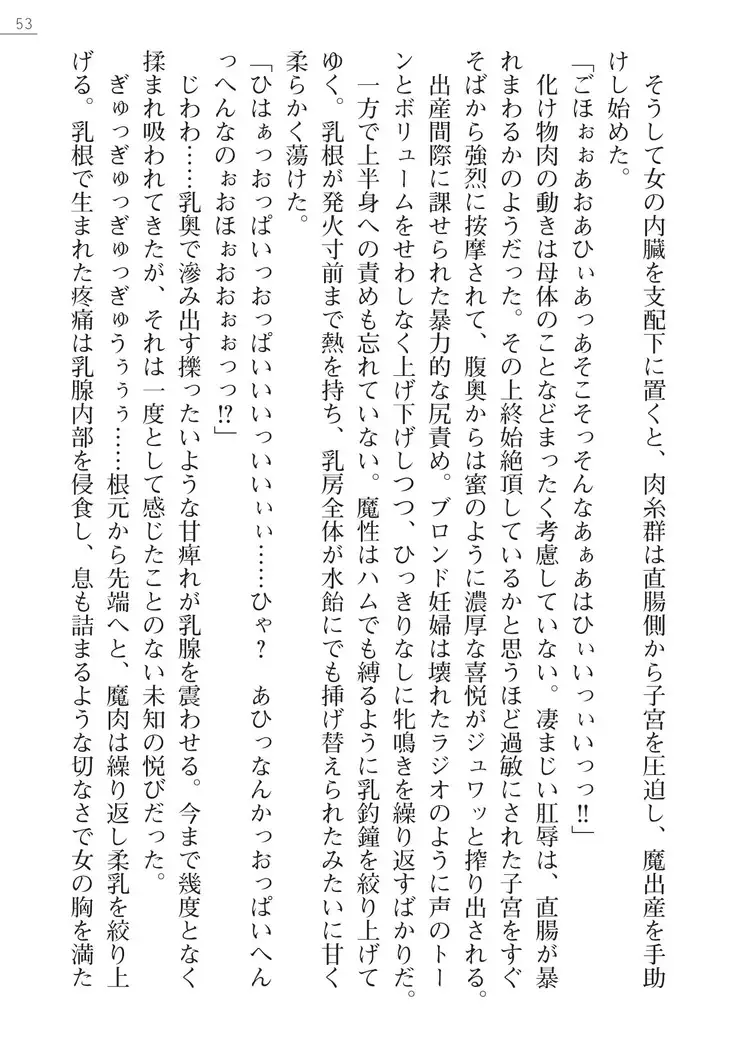 53
そうして女の内臓を支配下に置くと、肉糸群は直腸側から子宮を圧迫し、魔出産を手助
けし始めた。
「ごほぉぉあおあひぃあっあそこそっそんなあぁあはひぃいっぃいっっ!!」
化け物肉の動きは母体のことなどまったく考慮していない。凄まじい肛辱は、直腸が暴
れまわるかのようだった。その上終始絶頂しているかと思うほど過敏にされた子宮をすぐ
そばから強烈に按摩されて、腹奥からは蜜のように濃厚な喜悦がジュワッと搾り出される。
出産間際に課せられた暴力的な尻責め。ブロンド妊婦は壊れたラジオのように声のトー
ンとボリュームをせわしなく上げ下げしつつ、ひっきりなしに牝鳴きを繰り返すばかりだ。
一方で上半身への責めも忘れていない。魔性はハムでも縛るように乳釣鐘を絞り上げて
ゆく。乳根が発火寸前まで熱を持ち、乳房全体が水飴にでも挿げ替えられたみたいに甘く
柔らかく蕩けた。
「ひはぁっおっぱいっおっぱいいいっいいぃぃ……ひゃ?　あひっなんかっおっぱいへん
っへんなのぉおほぉおおぉぉっっ!?」
じわわ……乳奥で滲み出す擽ったいような甘痺れが乳腺を震わせる。今まで幾度となく
揉まれ吸われてきたが、それは一度として感じたことのない未知の悦びだった。
ぎゅっぎゅっぎゅっぎゅうぅぅぅ……根元から先端へと、魔肉は繰り返し柔乳を絞り上
げる。乳根で生まれた疼痛は乳腺内部を侵食し、息も詰まるような切なさで女の胸を満た